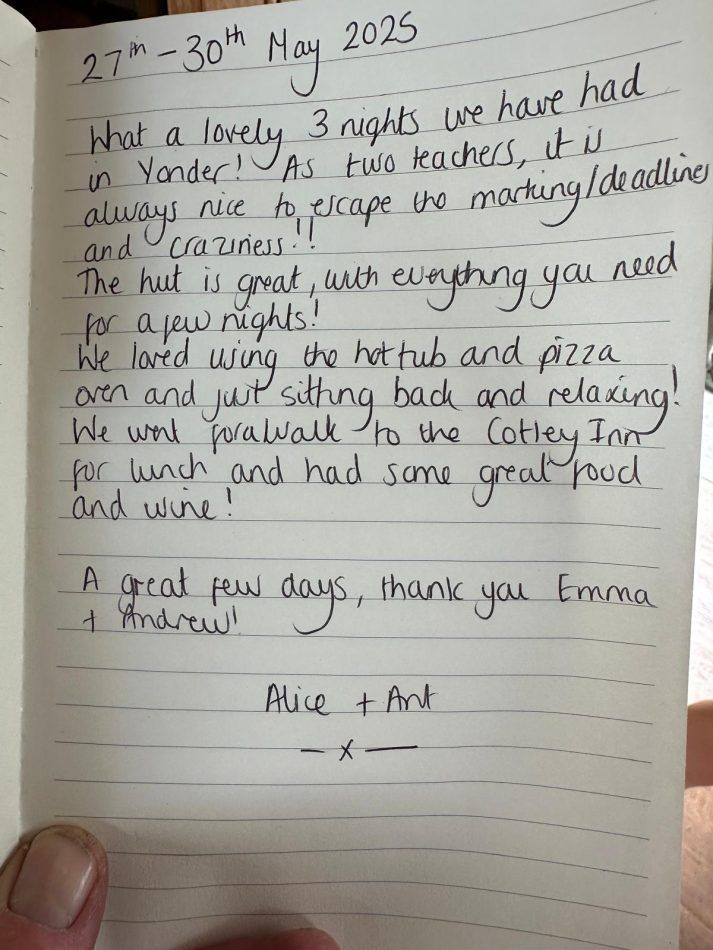 27th - 30th May 2025
What a lovely 3 nights we have had
in Yonder! As two teachers, it is
always nice to escape the marking/deadlines
and craziness!!
The hut is great, with everything you need
for a few nights!
We loved using the hot tub and pizza
oven and just sitting back and relaxing!
We went for a walk to the Cotley Inn
for lunch and had some great food
and wine!
A great few days, thank you Emma
+ Andrew!
Alice + Ant
— x —